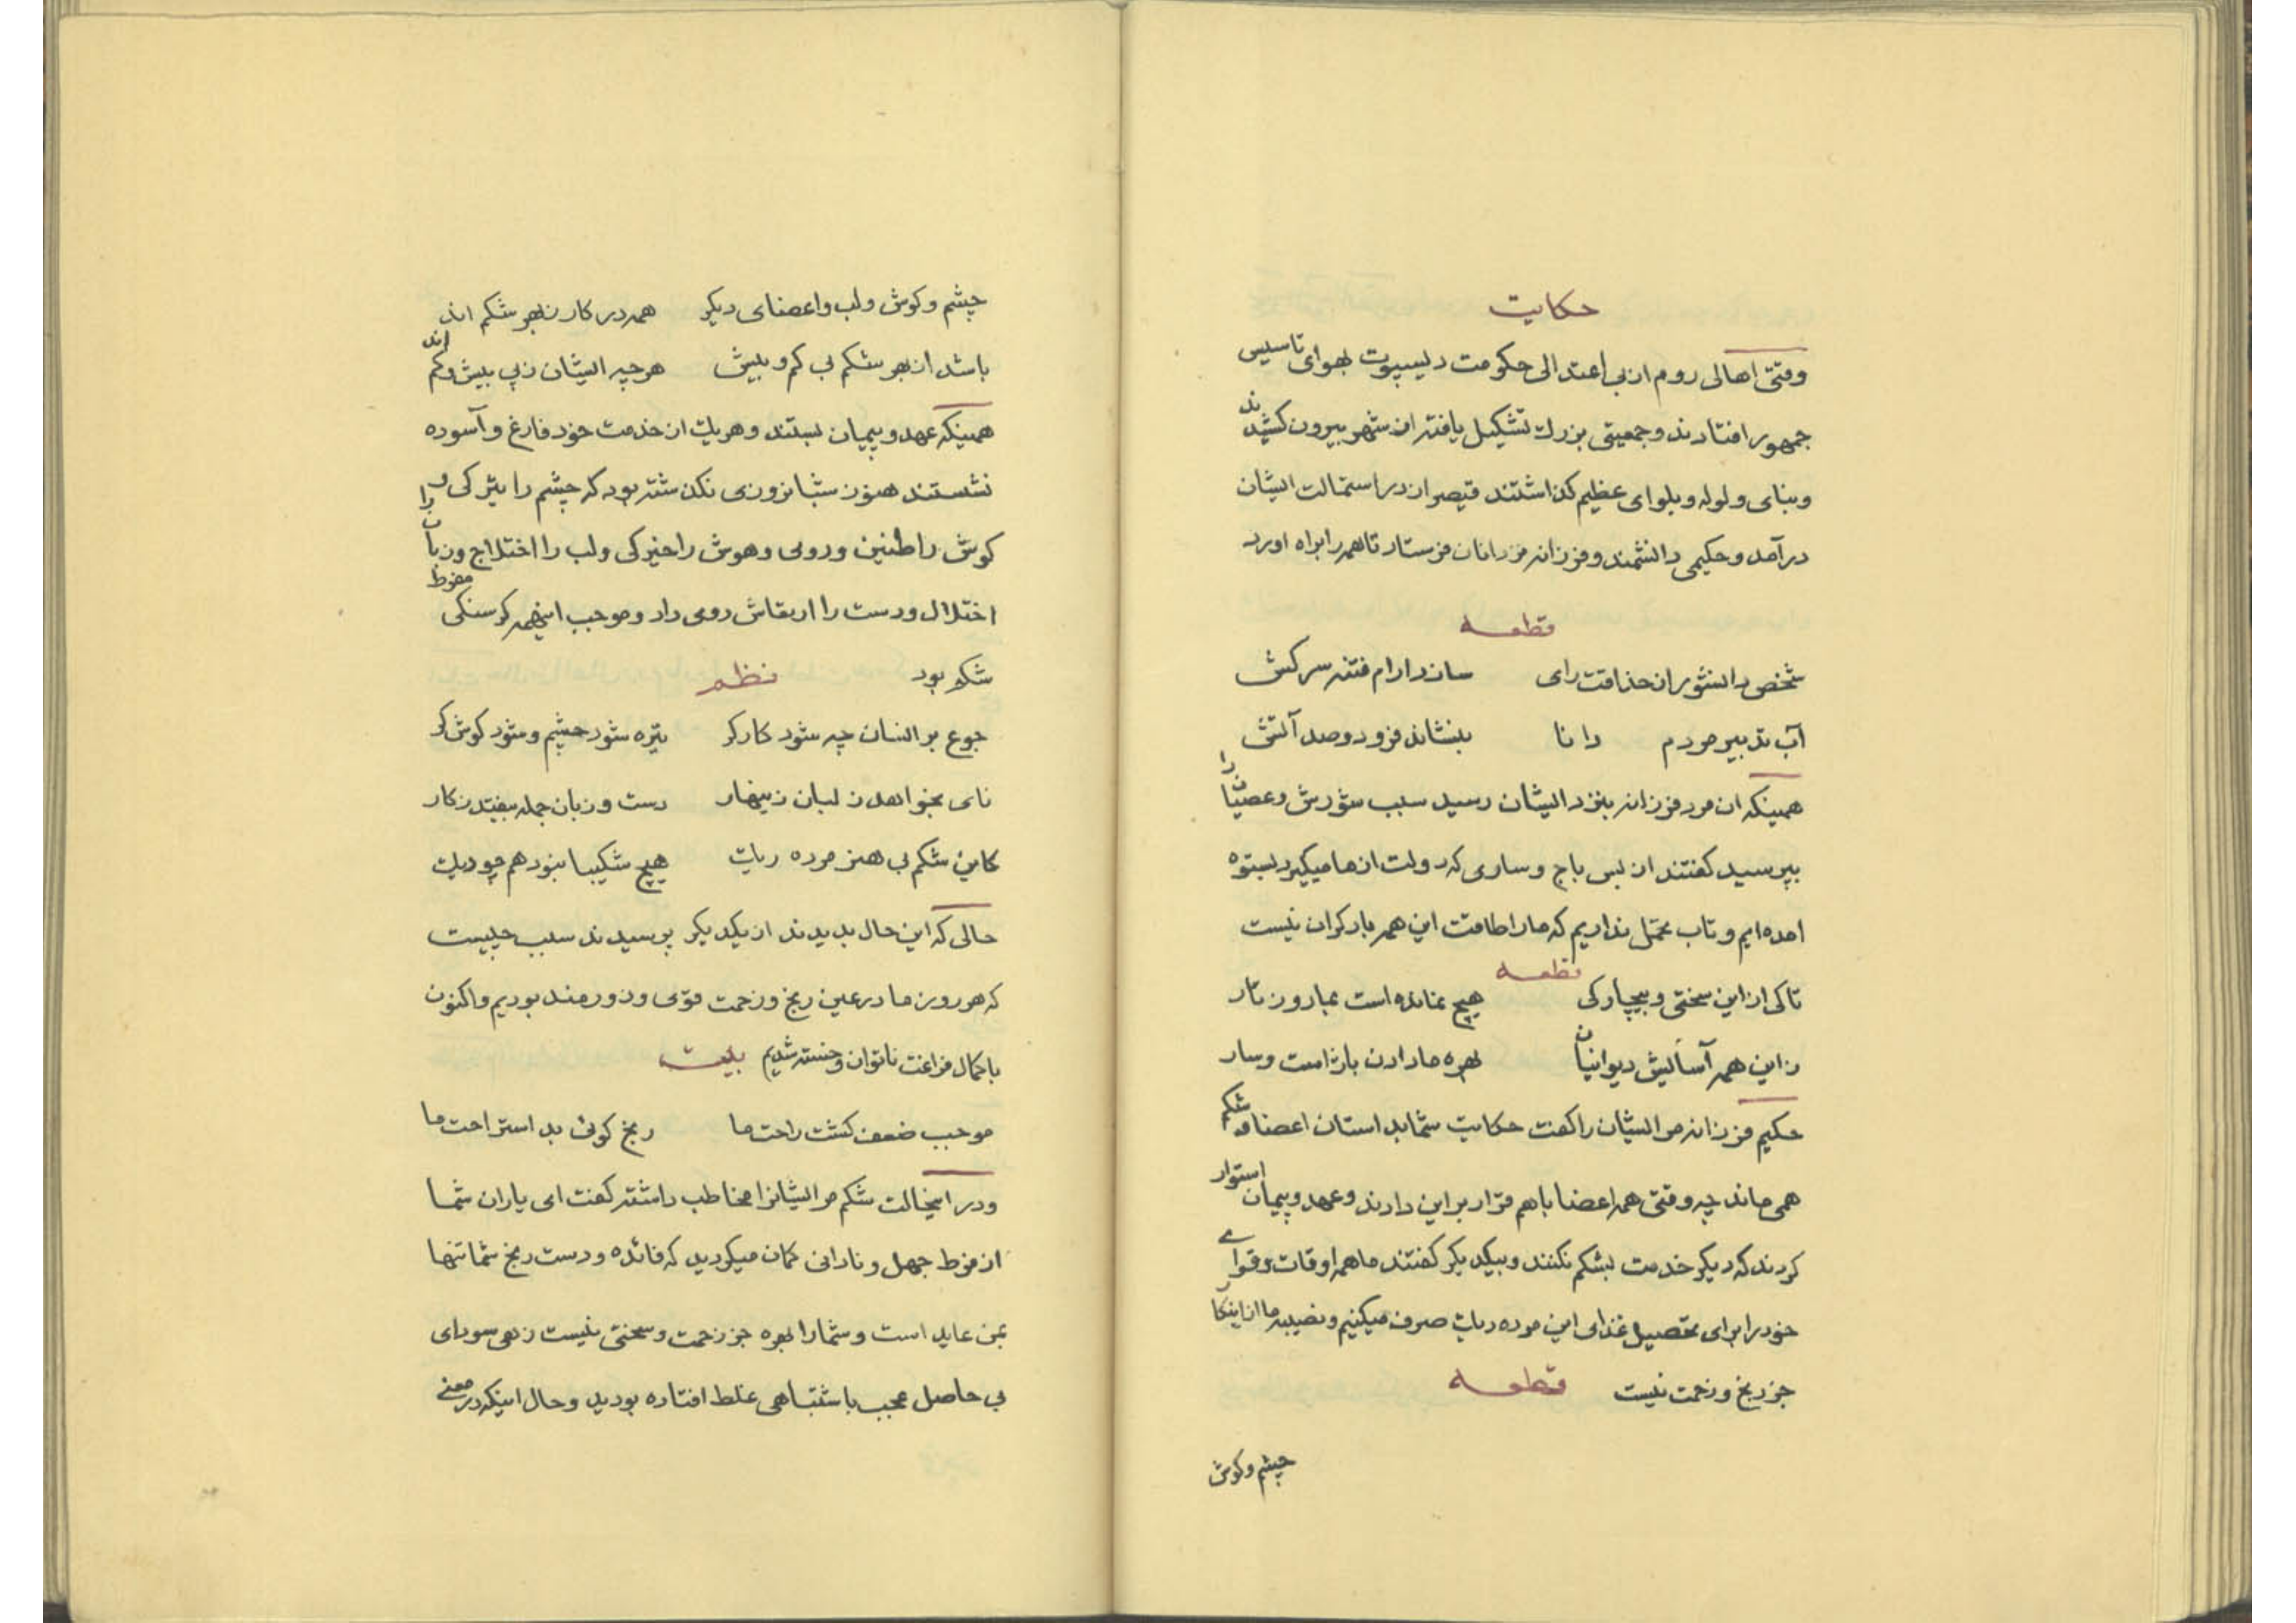 حکایت
وقتی اهالی روم از بی اعتدالی حکومت دیسپوت بهوای تاسیس
جمهور افتادند و جمعیتی بزرك تشکیل یافته از شهر بیرون کشیدند
و بنای ولوله و بلوای عظیم گذاشتند قیصر از در استمالت ایشان
در آمد و حکیمی دانشمند و فرزانه فرستاد تا همه را براه اورد
قطعه
شخص دانشور از حذاقت رای ساند ارام فتنه سرکش
آب تدبیر مردم دانا بنشاند فرود وصد آتش
همینکه ان مرد فرزانه بنزد ایشان رسید سبب شورش و عصیان را
بپرسید کفتند از بس باج و ساوی که دولت از ما میکیرد بستوه
امده ایم و تاب تحمل نداریم که ما را طاقت این همه بار کران نیست
قطعه
تا کی از این سختی و بیچارکی هیچ نمانده است بما روزکار
زاین همه آسایش دیوانیان بهره ما دادن باژ است و سار
حکیم فرزانه مر ایشان را کفت حکایت شما بداستان اعضا و شکم
همی ماند چه وقتی همه اعضا با هم قرار بر این دادند و عهد و پیمان استوار
کردند که دیکر خدمت بشکم نکنند و بیکدیکر کفتند ما همه اوقات و قوای
خود را برای تحصیل غذای این مرده ریك صرف میکنیم و نصیبه ما از اینکار
جز رنج و زحمت نیست قطعه
چشم و کوش
چشم و کوش و لب و اعضای دیکر همه در کار ز بهر شکم اند
باشد از بهر شکم بی کم و بیش هر چه ایشان ز پی بیش و کم اند
همینکه عهد و پیمان بستند و هریك از خدمت خود فارغ و آسوده
نشستند هنوز شبانروزی نکذشته بود که چشم را تیرکی و
کوش را طنین و دوی و هوش را خیرکی و لب را اختلاج و زبان را
اختلال و دست را ارتعاش روی داد و موجب اینهمه کرسنکی مفرط
شکم بود نظم
جوع بر انسان چه شود کارکر تیره شود چشم و شود کوش کر
نای بخواهد ز لبان زینهار دست و زبان جمله بیفتد ز کار
کاین شکم بی هنر مرده ریك هیچ شکیبا نبود هم چو دیك
حالی که این حال بدیدند از یکدیکر پرسیدند سبب چیست
که هر روز ما در عین رنج و زحمت قوی و زورمند بودیم و اکنون
با کمال فراغت ناتوان و خسته شدیم بیت
موجب ضعف کشت راحت ما رنج کوئی بد استراحت ما
و در اینحالت شکم مر ایشانرا مخاطب داشته کفت ای یاران شما
از فرط جهل و نادانی کمان میکردید که فائده و دست رنج شما تنها
بمن عاید است و شما را بهره جز زحمت و سختی نیست زهی سودای
بی حاصل عجب باشتباهی غلط افتاده بودید و حال اینکه در معنی